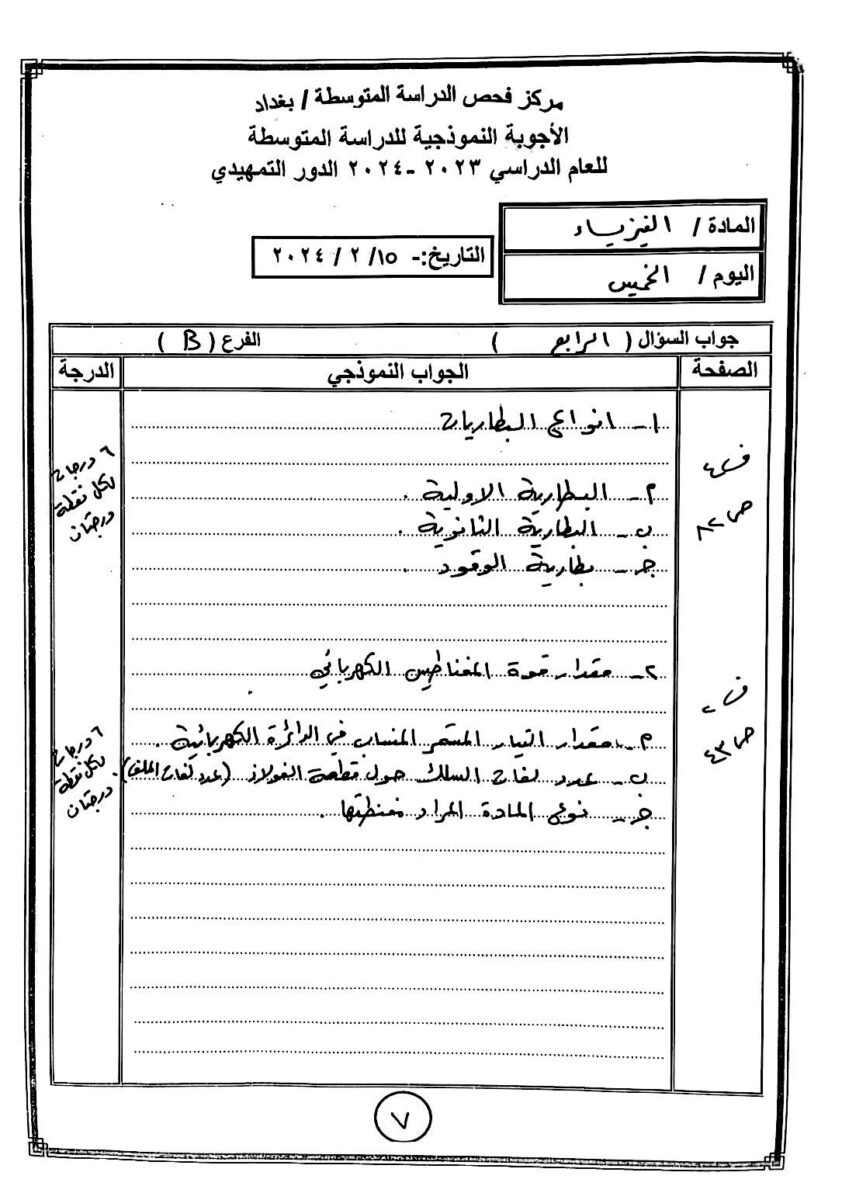 مركز فحص الدراسة المتوسطة / بغداد
الأجوبة النموذجية للدراسة المتوسطة
للعام الدراسي ٢٠٢٣ -٢٠٢٤ الدور التمهيدي
المادة / الفيزياء
اليوم / الخميس
التاريخ:- ١٥/ ٢ / ٢٠٢٤
جواب السؤال ( الرابع ) الفرع ( B )
الصفحة الجواب النموذجي الدرجة
١- انواع البطاريات
ف٤
ص٨٢
٦ درجات
لكل نقطة
درجتان
٢- البطارية الاولية .
ب- البطارية الثانوية .
جـ- بطارية الوقود .
٢- مقدار قوة المغناطيس الكهربائي
ف٢
ص٤٣
٦ درجات
لكل نقطة
درجتان
٢- مقدار التيار المستمر المنساب في الدائرة الكهربائية .
ب- عدد لفات السلك حول قطعة الفولاذ (عدد لفات الملف) .
جـ- نوع المادة المراد مغنطتها .
٧